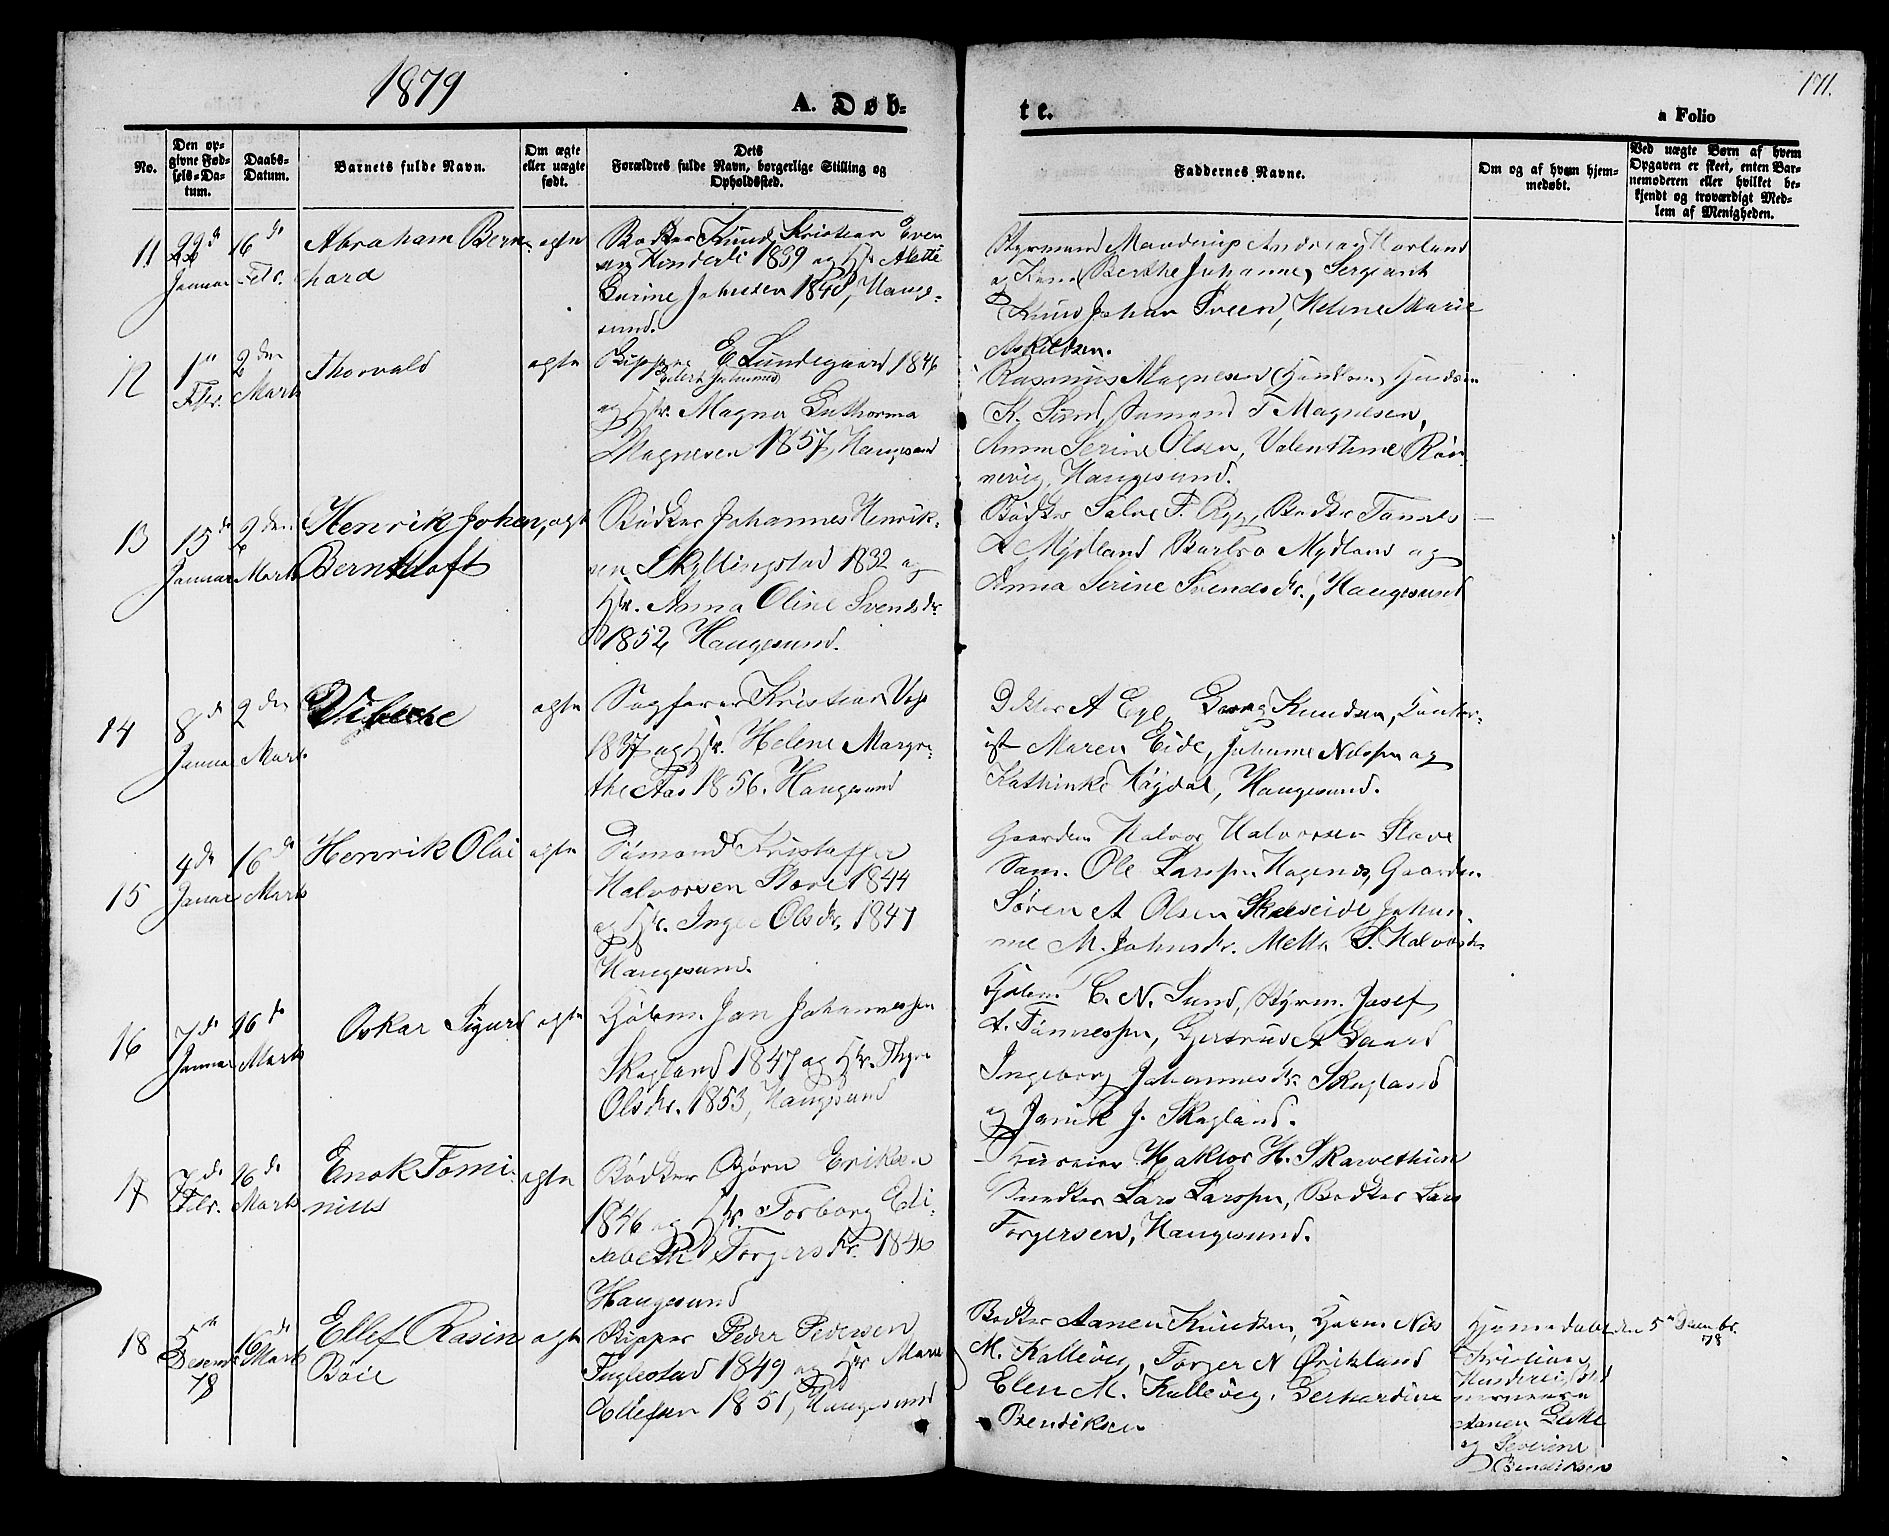 1879
A. Døb-
te.
171.
a Folio
No.
Den op-
givne Fød-
sels-Da-
tum.
Daabs-
Datum.
Barnets fulde Navn.
Om ægte
eller uægte
født.
Dets
Forældres fulde Navn, borgerlige Stilling og
Opholdssted.
Faddernes Navne.
Om og af hvem hjem-
medøbt.
Ved uægte Børn af hvem
Opgaven er skeet, enten Bar-
nemoderen eller hvilket be-
kjendt og troværdigt Med-
lem af Menigheden.
11
22d
Januar
16de
Feb.
Abraham Bern-
hard
ægte
Bødker Knud Kristian Even
1839 og Hstr. Alette
Gurine Johnsen 1840, Hauge-
sund.
Styrmand Mandrup Andreas Havland
og Kone Berthe Johanne, Sergeant
Knud Johan Sveen, Helene Marie
Askildsen.
12
1ste
Febr.
2den
Marts
Thorvald
ægte
Skipper E Lundegaard 1846
Peder Johannes
og Hstr. Magna Guthorma
Magnesen 1857, Haugesund
Rasmus Magnesen
K. Sund, Sømand T Magnesen,
Anna Serine Olsen, Valentine Røv
nevig, Haugesund.
13
15de
Januar
2den
Marts
Henrik Johan
Berntloft
ægte
Bødker Johannes Henrik-
sen Skyllingstad 1832 og
Hstr. Anna Oline Svendsdr.
1852, Haugesund.
Bødker Salve P. Ege, Bødker Tønnes
Mydland Barbro Mydland og
Anna Serine Svendsdr., Haugesund
14
8de
Januar
2den
Marts
Vibecke
ægte
Sagfører Kristian
1837 og Hstr. Helene Margre-
the Aas 1856. Haugesund
Doktor A Ege, Georg Knudsen, Kontor-
ist Maren Eide, Johanne Nilssen og
Kathinke Høydal, Haugesund.
15
4de
Januar
16de
Marts
Henrik Olai
ægte
Sømand Kristoffer
Halvorsen Stave 1844
og Hstr. Inger Olsdr. 1847
Haugesund.
Gaardm. Halvor Halvorsen Stave
Søm. Ole Larssen Hagenæs, Gaardm.
Søren A Olsen Skeiseide Johan-
ne M. Johnsdr. Mette S. Halvorsdr.
16
7de
Januar
16de
Marts
Oskar Sigurd
ægte
Hølem. Jan Johannessen
Skagland 1847 og Hstr. Thyra
Olsdr. 1853, Haugesund
C. N. Sund, Styrm. Josef
A. Tønnessen, Gertrud A Gaard
Ingeborg Johannesdr. Skagland
og Janik J. Skagland.
17
7de
Febr.
16de
Marts
Enok Tomi-
nius
ægte
Bødker Bjørn Eriksen
1846 og Hstr. Torborg Eli-
sabeth Torgersdr. 1846
Haugesund
Haktor H. Skarvethun
Snedker Lars Larssen, Bødker Lars
Torgersen, Haugesund.
18
5te
Desemb.
78
16de
Marts
Ellef Rasin
Boie
ægte
Skipper Peder Pedersen
Fuglestad 1849 og Hstr. Marie
Ellefsen 1851, Haugesund
Bødker Aanen Knudsen, Nils
M. Kallevig, Torger N Ørikland
Elen M. Kallevig, Gerhardine
Bendiksen
Hjemmedøbt den 5te Decembr.
78
Kristiane
Aanen
og Severine
Bendiksen